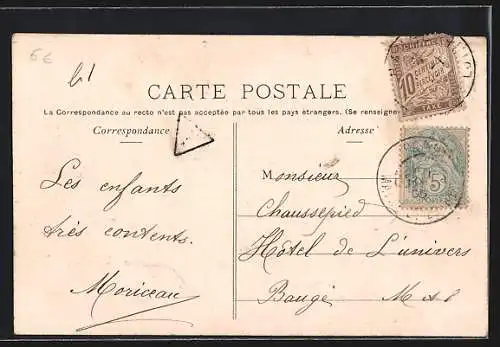 6€
61
CARTE POSTALE
La Correspondance au recto n'est pas acceptée par tous les pays étrangers. (Se renseigne
Correspondance
Adresse
10
TAXE
5
Monsieur
Chaussepied
Hôtel de L'univers
Baugé M et L
Les enfants
très contents.
Moriceau